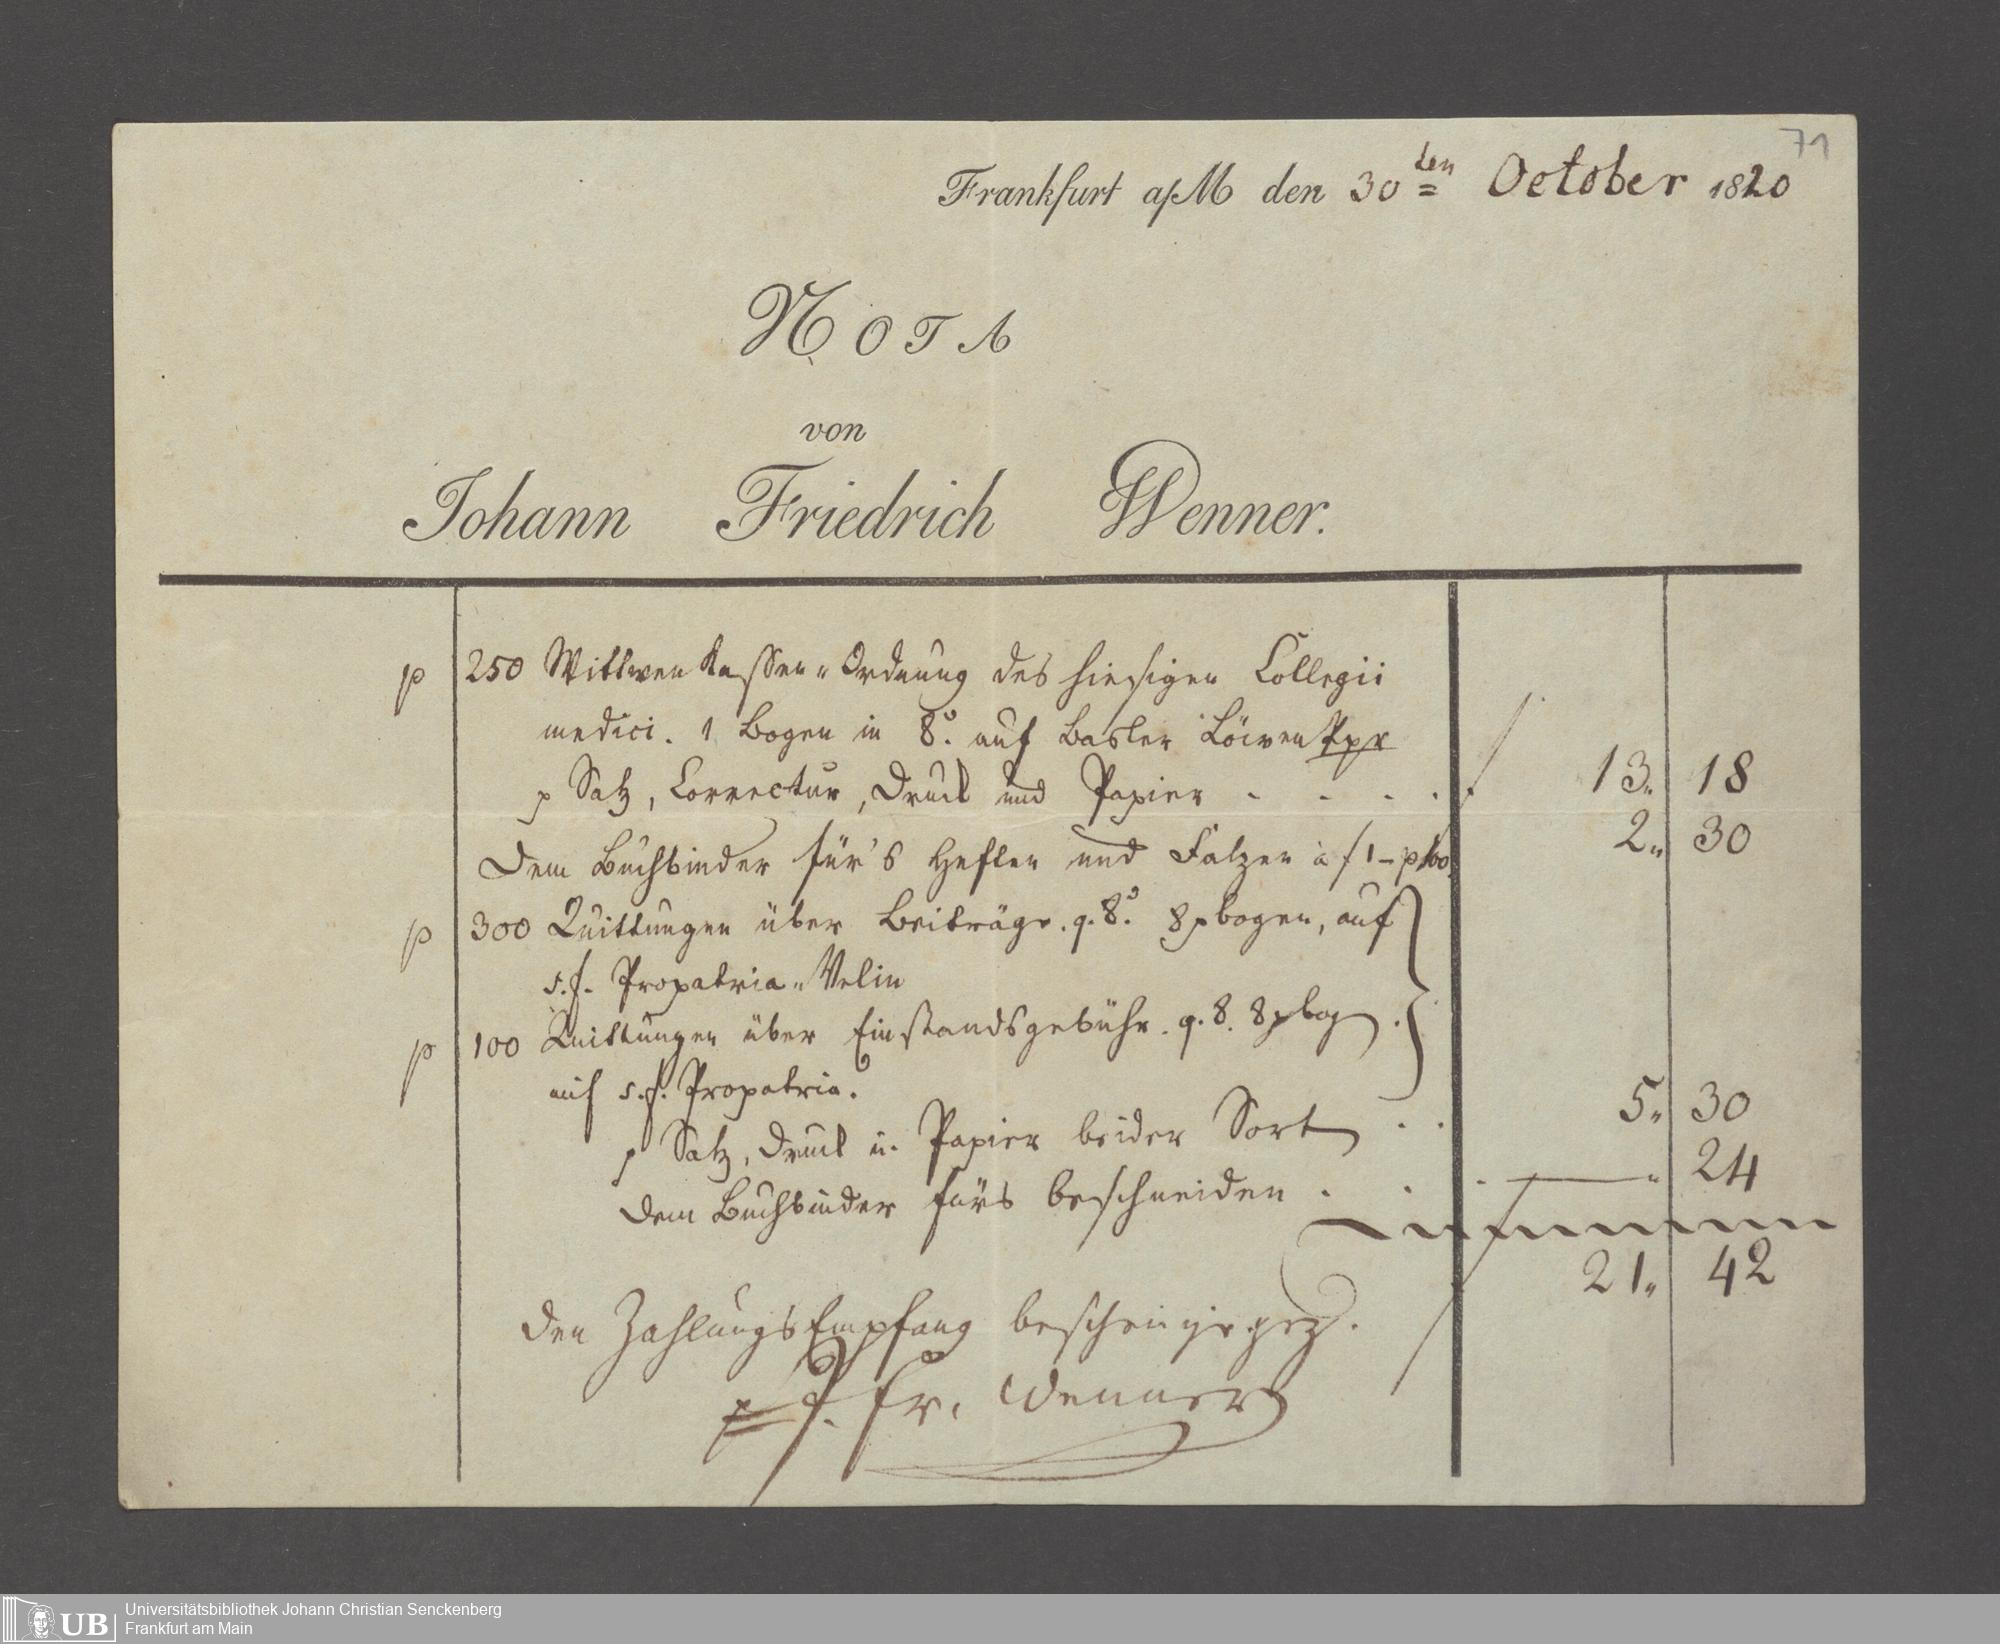 71
Frankfurt a/M den 30ten October 1820
NOTA
von
Johann Friedrich Wenner.
p 250 Wittwen Kassen-Ordnung des hiesigen Collegii
medici. 1 Bogen in 8o. auf Basler Löwen Ppr
p Satz, Correctur, Druck und Papier . . . . 13. 18
Dem Buchbinder für's Heften und Falzen à f 1 – p 100 2. 30
p 300 Quittungen über Beiträge. q. 8o. 8 p bogen, auf
s. f. Propatria-Velin
p 100 Quittungen über Einstandsgebühr. q. 8. 8 p bog.
auf s. f. Propatria.
p Satz, Druck u. Papier beider Sort . . 5. 30
Dem Buchbinder fürs beschneiden . . . — 24
21. 42
Den Zahlungs Empfang bescheinige
J. Fr. Wenner
UB
Universitätsbibliothek Johann Christian Senckenberg
Frankfurt am Main